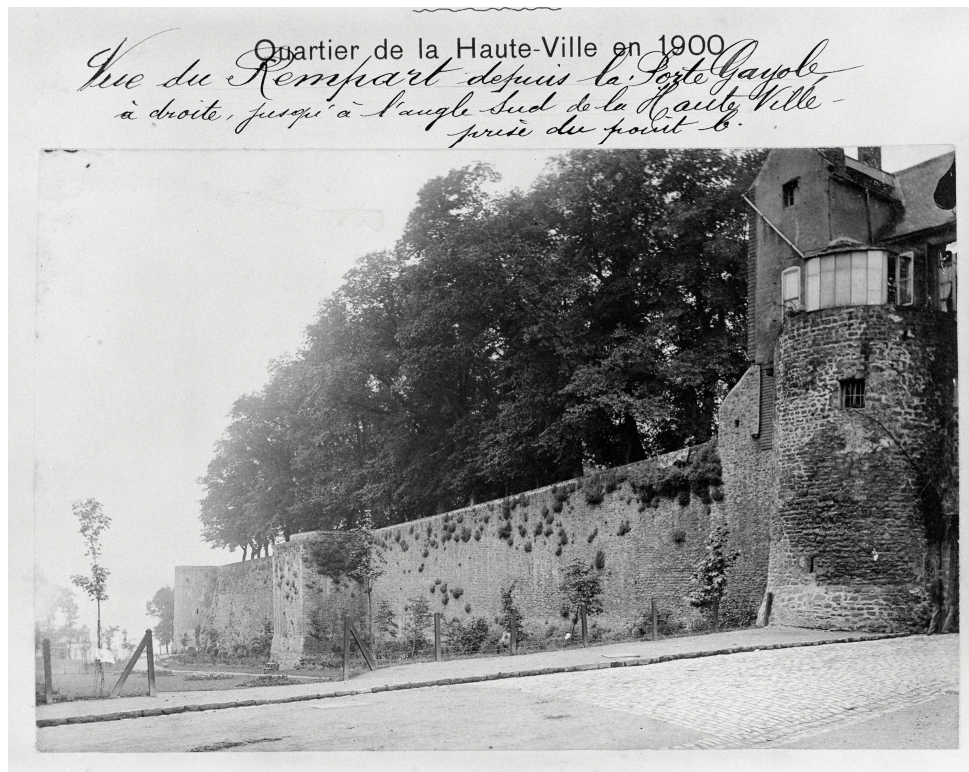 Quartier de la Haute-Ville en 1900
Vue du Rempart depuis la Porte Gayole
à droite, jusqu'à l'angle Sud de la Haute Ville -
prise du point 6.